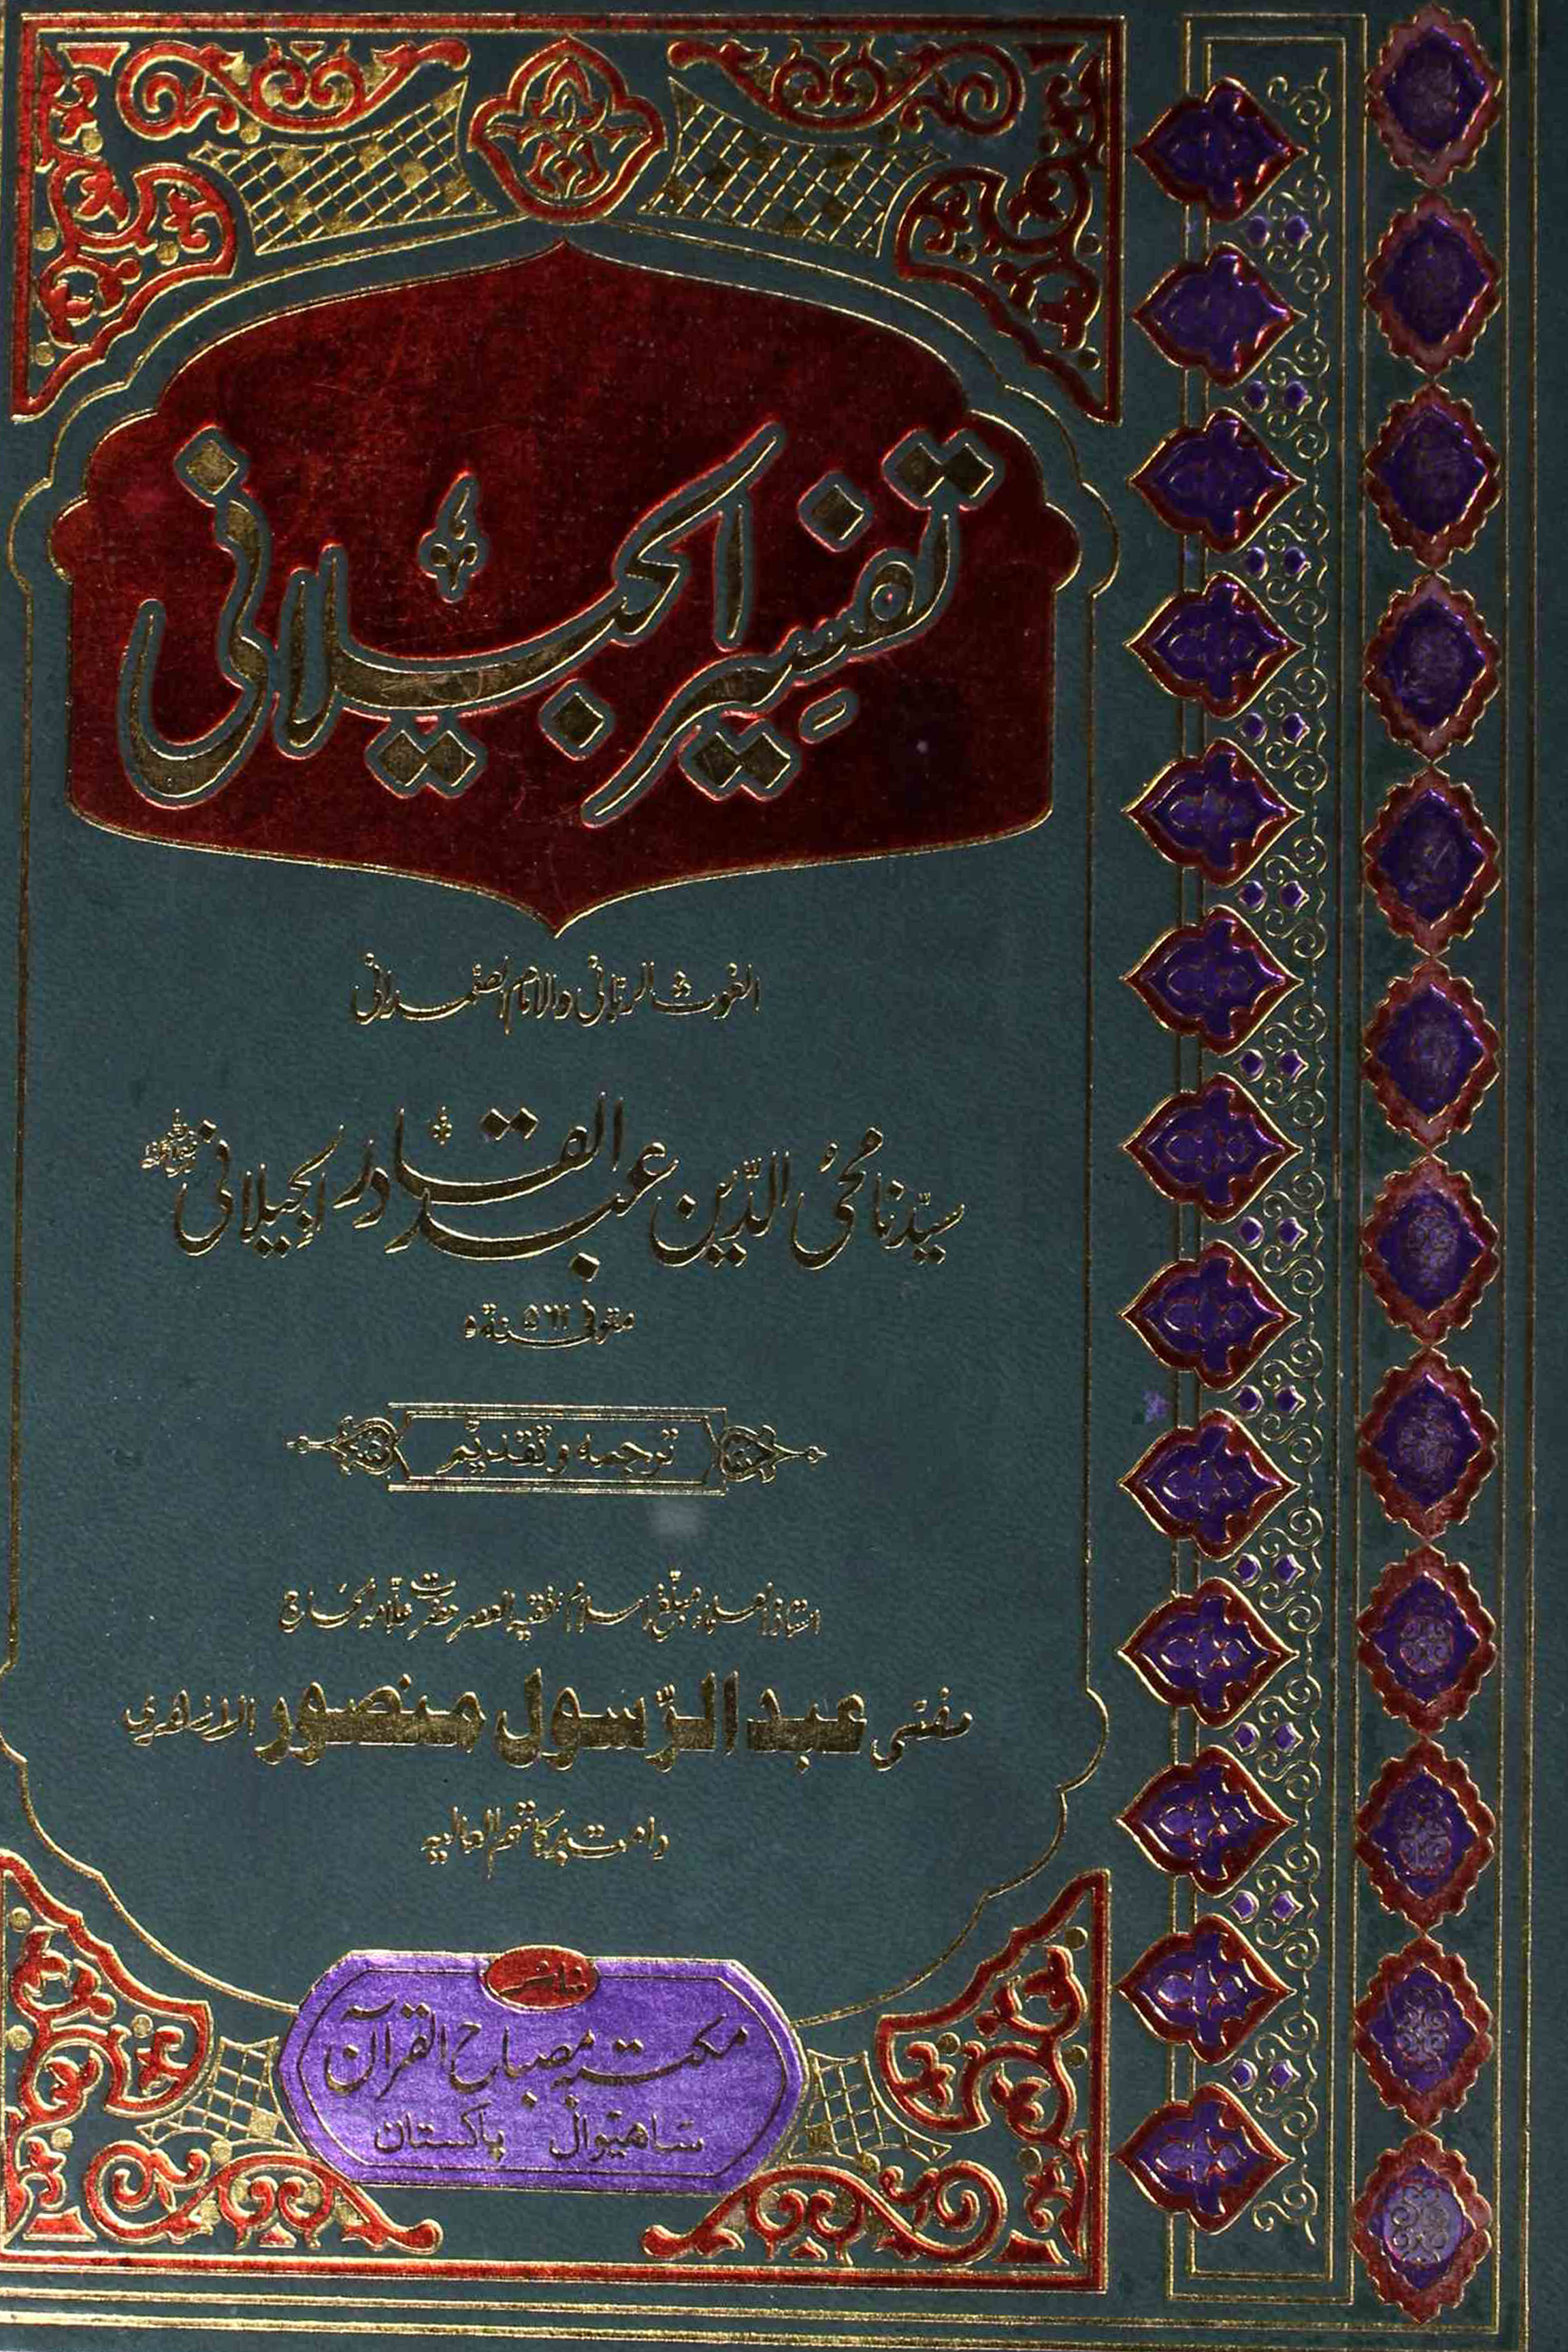 تفسیر الجیلانی
الغوث الربانی والامام الصمدانی
سیّدنا محی الدّین عبد القادر الجیلانی
متوفی سنة ٥٦١ ه
ترجمه و تقدیم
استاذ العلماء مبلّغ اسلام فقیه العصر حضرت علّامه الحاج
مفتی عبد الرّسول منصور الازهری
دامت برکاتهم العالیه
ناشر
مکتبه مصباح القرآن
ساهیوال پاکستان